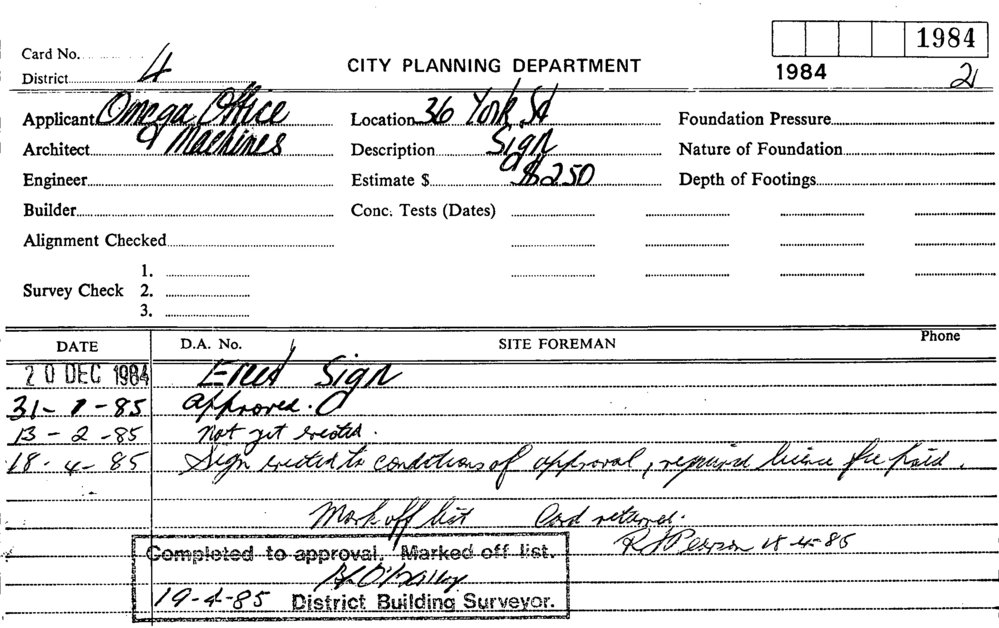 1984
Card No.
District 4
CITY PLANNING DEPARTMENT
1984 2
Applicant Omega Office
Location 36 York St
Foundation Pressure
Architect & Machines
Description Sign
Nature of Foundation
Engineer
Estimate $ $250
Depth of Footings
Builder
Conc. Tests (Dates)
Alignment Checked
Survey Check 1.
2.
3.
DATE D.A. No. SITE FOREMAN Phone
20 DEC 1984 Erect Sign
31-1-85 approved.
13-2-85 Not yet erected.
18-4-85 Sign erected to conditions of approval, required licence fee paid.
Mark off list Card returned.
18-4-85
Completed to approval. Marked off list.
19-4-85 District Building Surveyor.